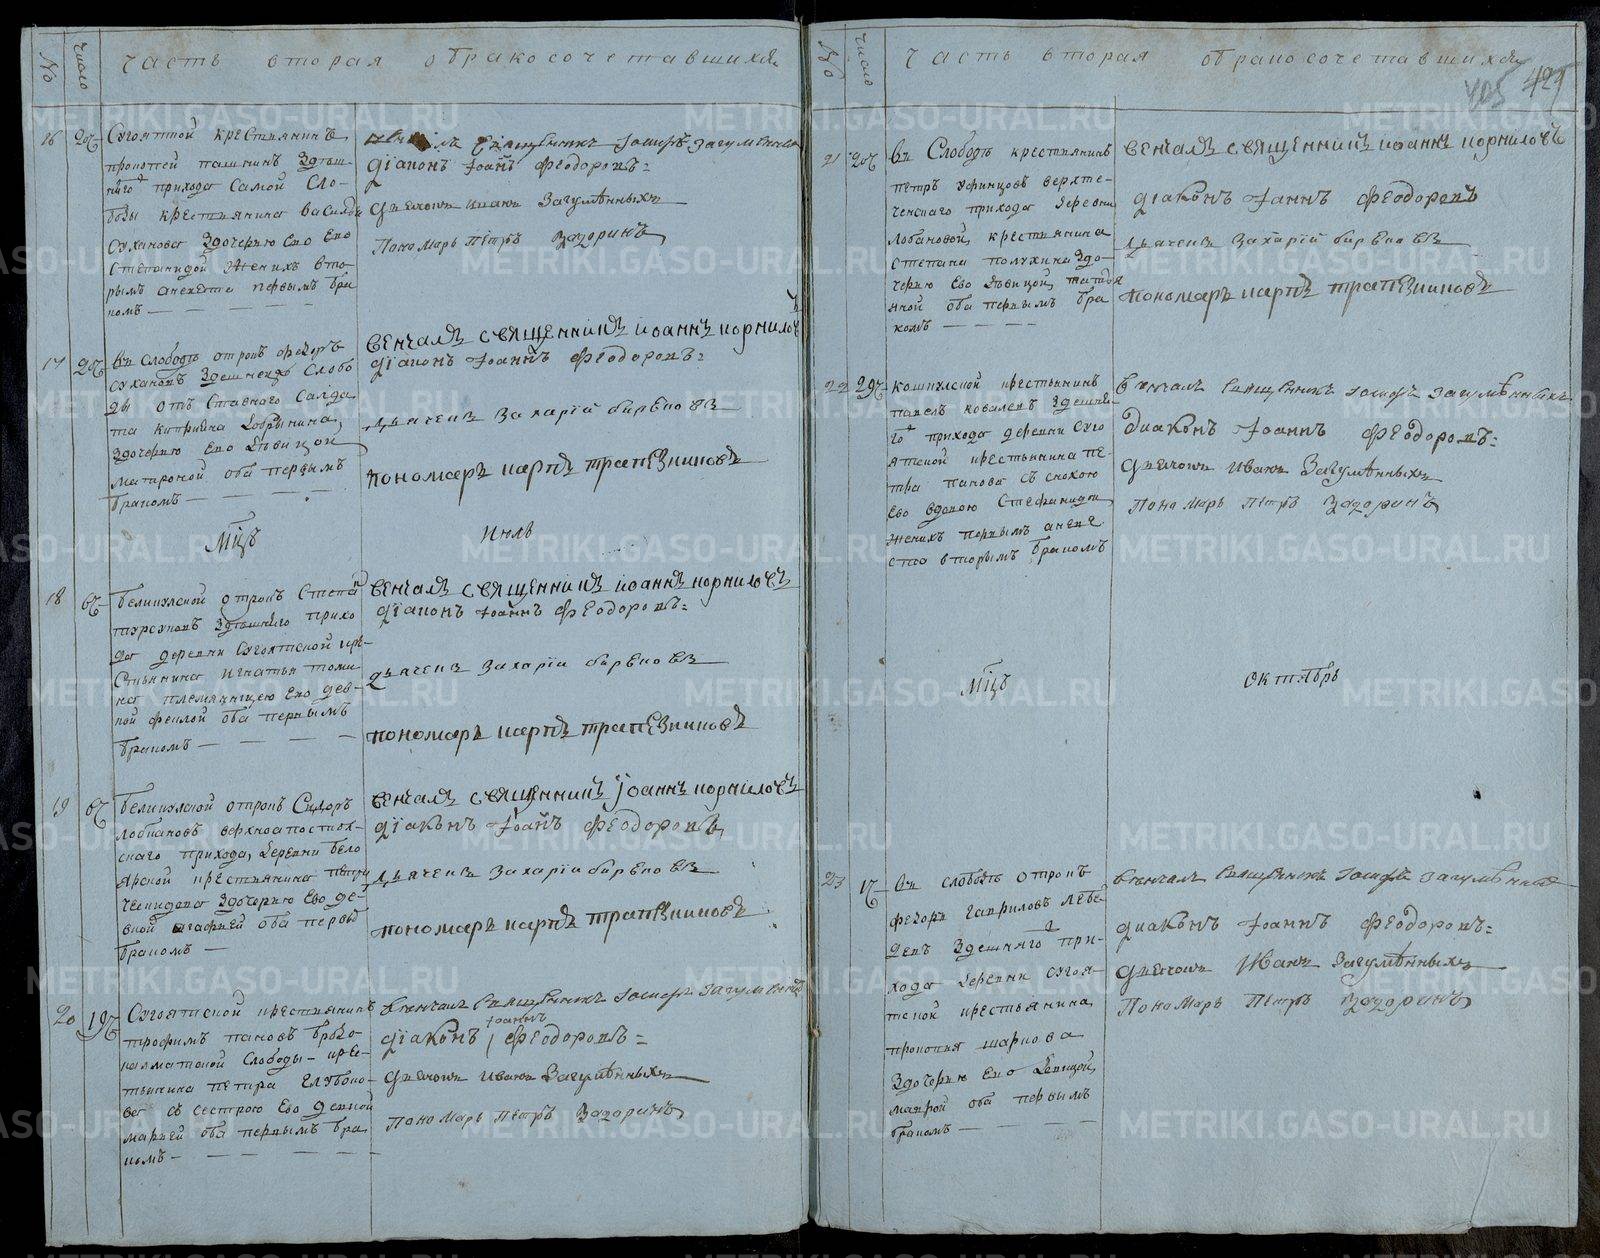 № число Часть вторая обракосочетавшихся
16 Сугоятской крестьянинъ
прокопей пашнинъ Здѣш
няго прихода самой Сло-
боды крестьянина василья
Суханова Здочерью Ево
Степанидой Женихъ вто-
рымъ аневеста первымъ бра
комъ
священникъ Iосифъ Загуменныхъ
дiаконъ Iоаннъ Феодоровъ
дьячокъ иванъ Загумѣнныхъ
Пономарь Пётръ Задоринъ
17 Въ Слободѣ отрокъ Федоръ
Сухановъ Здешнея Слобо
ды отъ Ставного Салда
та киприяна Добрынина,
Здочерью Ево Дѣвицой
Матроной оба первымъ
бракомъ
венчалъ священникъ iоаннъ корниловъ
дiаконъ Iоаннъ Феодоровъ
дьячекъ Захарiй бирюковъ
пономарь карпъ трапезниковъ
Мцъ Июль
18 Беликулской отрокъ Степа
турсуковъ Здѣшняго прихо
да деревни Сугоятской кре-
стьянина игнатья
племянницею Ево дев-
кой феклой оба первымъ
бракомъ
венчалъ священникъ iоаннъ корниловъ
дiаконъ Iоаннъ Феодоровъ
дьячекъ Захарiй бирюковъ
пономарь карпъ трапезниковъ
19 Беликулской отрокъ Сидоръ
Лобкановъ верхноапостол-
скаго прихода, деревни бело
ярской крестьянина
Здочерью Ево де-
вкой агафьей оба первы
бракомъ
венчалъ священникъ iоаннъ корниловъ
дiаконъ Iоаннъ Феодоровъ
дьячекъ Захарiй бирюковъ
пономарь карпъ трапезниковъ
20 19 Сугоятской крестьянинъ
трофимъ пановъ брѣдо
калматской Слободы кре-
стьянина петра Глубоко-
ва съ сестрою Ево девкой
марьей оба первымъ бра
комъ
венчалъ Священникъ Iосифъ Загуменныхъ
дiаконъ Iоаннъ Феодоровъ
дьячокъ иванъ Загумѣнныхъ
Пономарь Пётръ Задоринъ
№ число Часть вторая обракосочетавшихся
405 421
21 Въ Слободѣ крестьянинъ
петръ Уфинцовъ верхте-
ченскаго прихода деревни
Лобановой, крестьянина
степана полухина Здо-
черью Ево Дѣвицой, татья
ной оба первымъ бра
комъ
венчалъ священникъ iоаннъ корниловъ
дiаконъ Iоаннъ Феодоровъ
дьячекъ Захарiй бирюковъ
пономарь карпъ трапезниковъ
22 29 Кошкулской крестьянинъ
павелъ ковалевъ Здешня
го прихода деревни Суго
ятской крестьянина пе-
тра панова съ снохою
Ево вдовою Стефанидой
Женихъ первымъ аневе
ста вторымъ бракомъ
венчалъ Священникъ Iосифъ Загумѣнныхъ
диаконъ Iоаннъ Феодоровъ
дьячокъ Иванъ Загумѣнныхъ
Пономарь Пётръ Задоринъ
Мцъ октябрь
23 17 Въ слободѣ отрокъ
федоръ гавриловъ Лебе
девъ Здешняго при-
хода деревни сугоя-
тской крестьянина
прокопия шаркова
Здочерью Ево Девицой,
маврой оба первымъ
бракомъ
венчалъ Священникъ Iосифъ Загумѣнныхъ
диаконъ Iоаннъ Феодоровъ
дьячокъ Иванъ Загумѣнныхъ
Пономарь Пётръ Задоринъ
METRIKI.GASO-URAL.RU